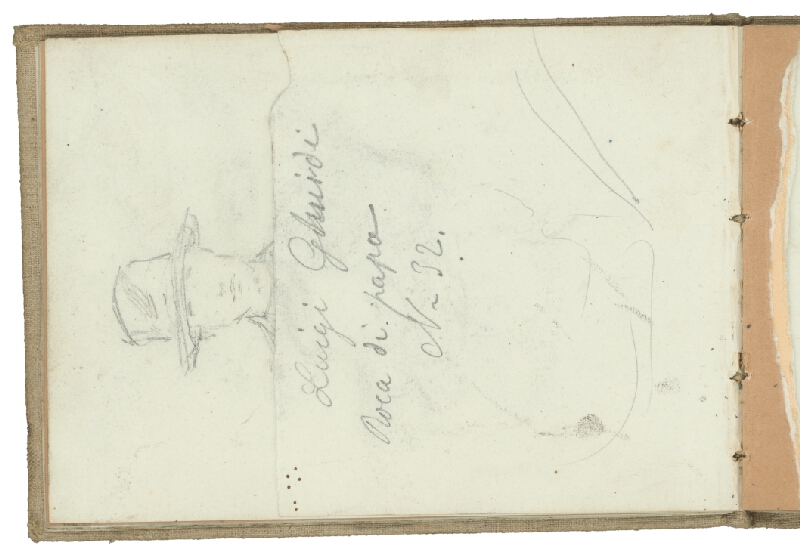 Luigi Ghuidi
Roca di papa
No 32.